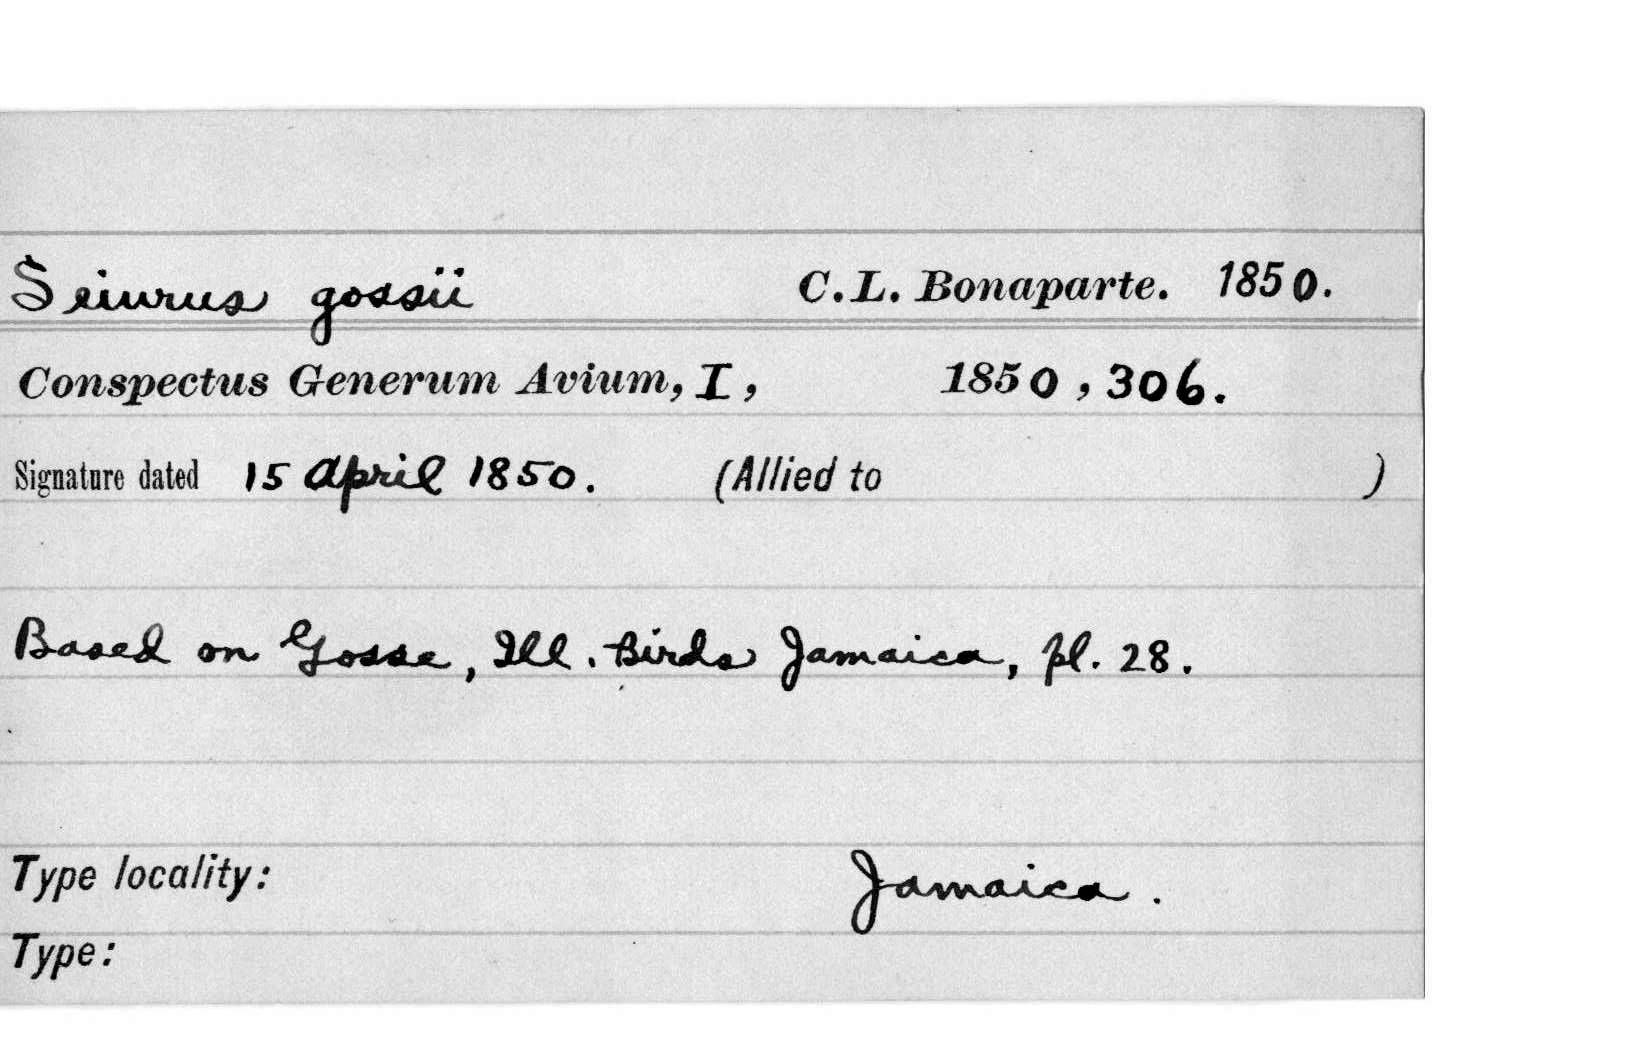 Seiurus gossii C.L. Bonaparte. 1850.
Conspectus Generum Avium, I, 1850, 306.
Signature dated 15 April 1850. (Allied to )
Based on Gosse, Ill. Birds Jamaica, pl. 28.
Type locality: Jamaica.
Type: